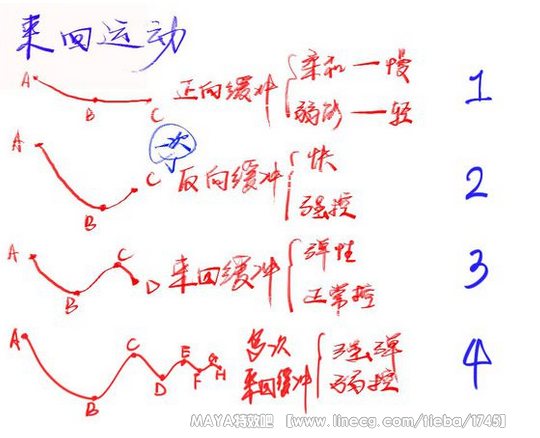 来回运动
A B C 正向缓冲 柔和一慢 1
弱的一轻
一次
A B C 反向缓冲 快 2
强控
A B C D 来回缓冲 弹性 3
正常控
A B C D E F G H 多次 强弹 4
来回缓冲 弱控
MAYA特效吧 【www.linecg.com/tieba/1745】